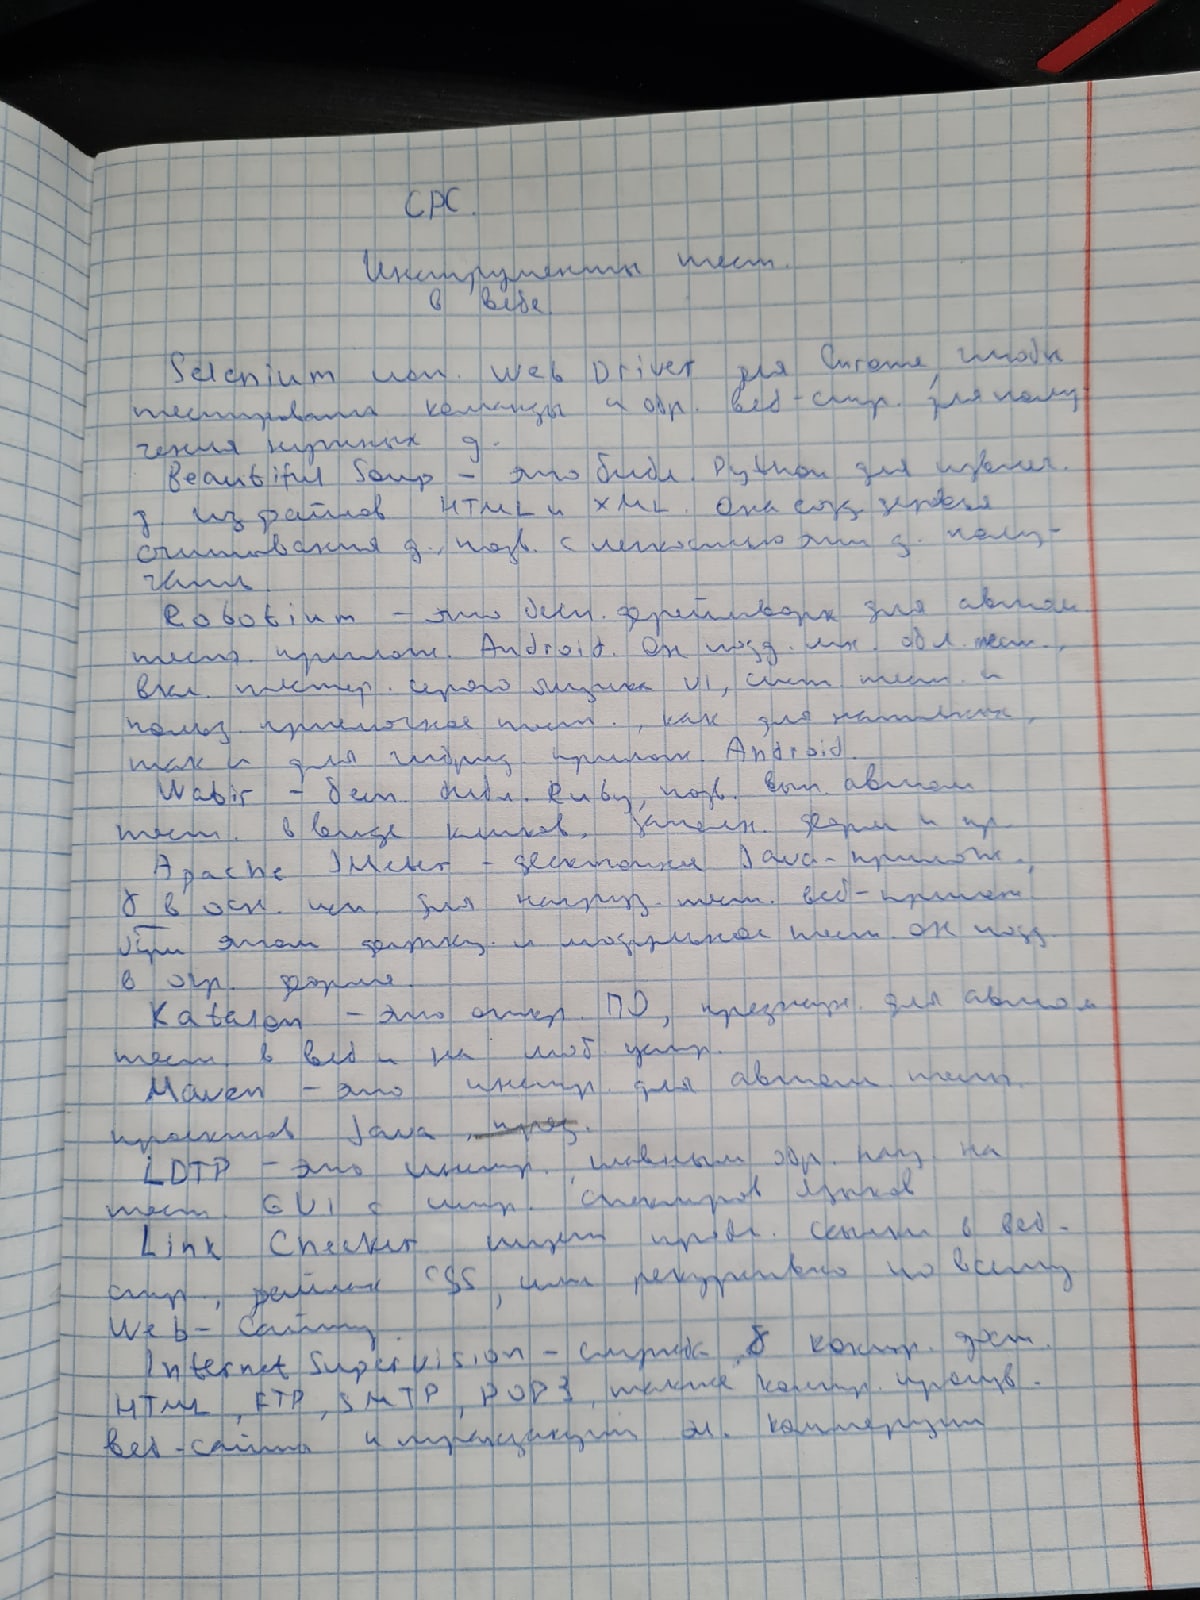 СРС.
Инструменты тест.
в вебе
Selenium исп. Web Driver для Chrome, чтобы
тестировать команды и обр. веб-стр. для полу-
чения нужных д.
Beautiful Soup – это библ. Python для извлеч.
д. из файлов HTML и XML. Она созд. дерево
считывания д., позв. с легкостью эти д. полу-
чать
Robotium – это бесп. фреймворк для автом.
тест. прилож. Android. Он подд. мн. обл. тест.,
вкл. тестир. серого ящика UI, сист. тест. и
польз. приемочное тест., как для нативных,
так и для гибрид. прилож. Android.
Watir – бесп. библ. Ruby, позв. вып. автом
тест. в виде кликов, заполн. форм и пр.
Apache JMeter – десктопное Java-прилож.,
в осн. исп. для нагруз. тест. веб-прилож
При этом функц. и модульное тест. он подд.
в огр. форме.
Katalon – это откр. ПО, предназн. для автом
тест в веб и на моб устр.
Maven – это инстр. для автом тест.
проектов Java
LDTP – это инстр. главным обр. нац. на
тест. GUI с шир. спектром языков
Link Checker ищет пробл. ссылки в веб-
стр, файлах CSS, или рекурсивно по всему
Web-сайту.
Internet Supervision – служба, контр. дост.
HTML, FTP, SMTP, POP3, также контр. произв.
веб-сайта и транзакций эл. коммерции